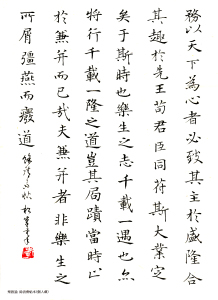 務以天下為心者必致其主於盛隆合
其趣於先王苟君臣同符斯大業定
矣于斯時也樂生之志千載一遇也亦
將行千載一隆之道豈其局蹟當時止
於兼并而已哉夫兼并者非樂生之
所屑彊燕而癈道